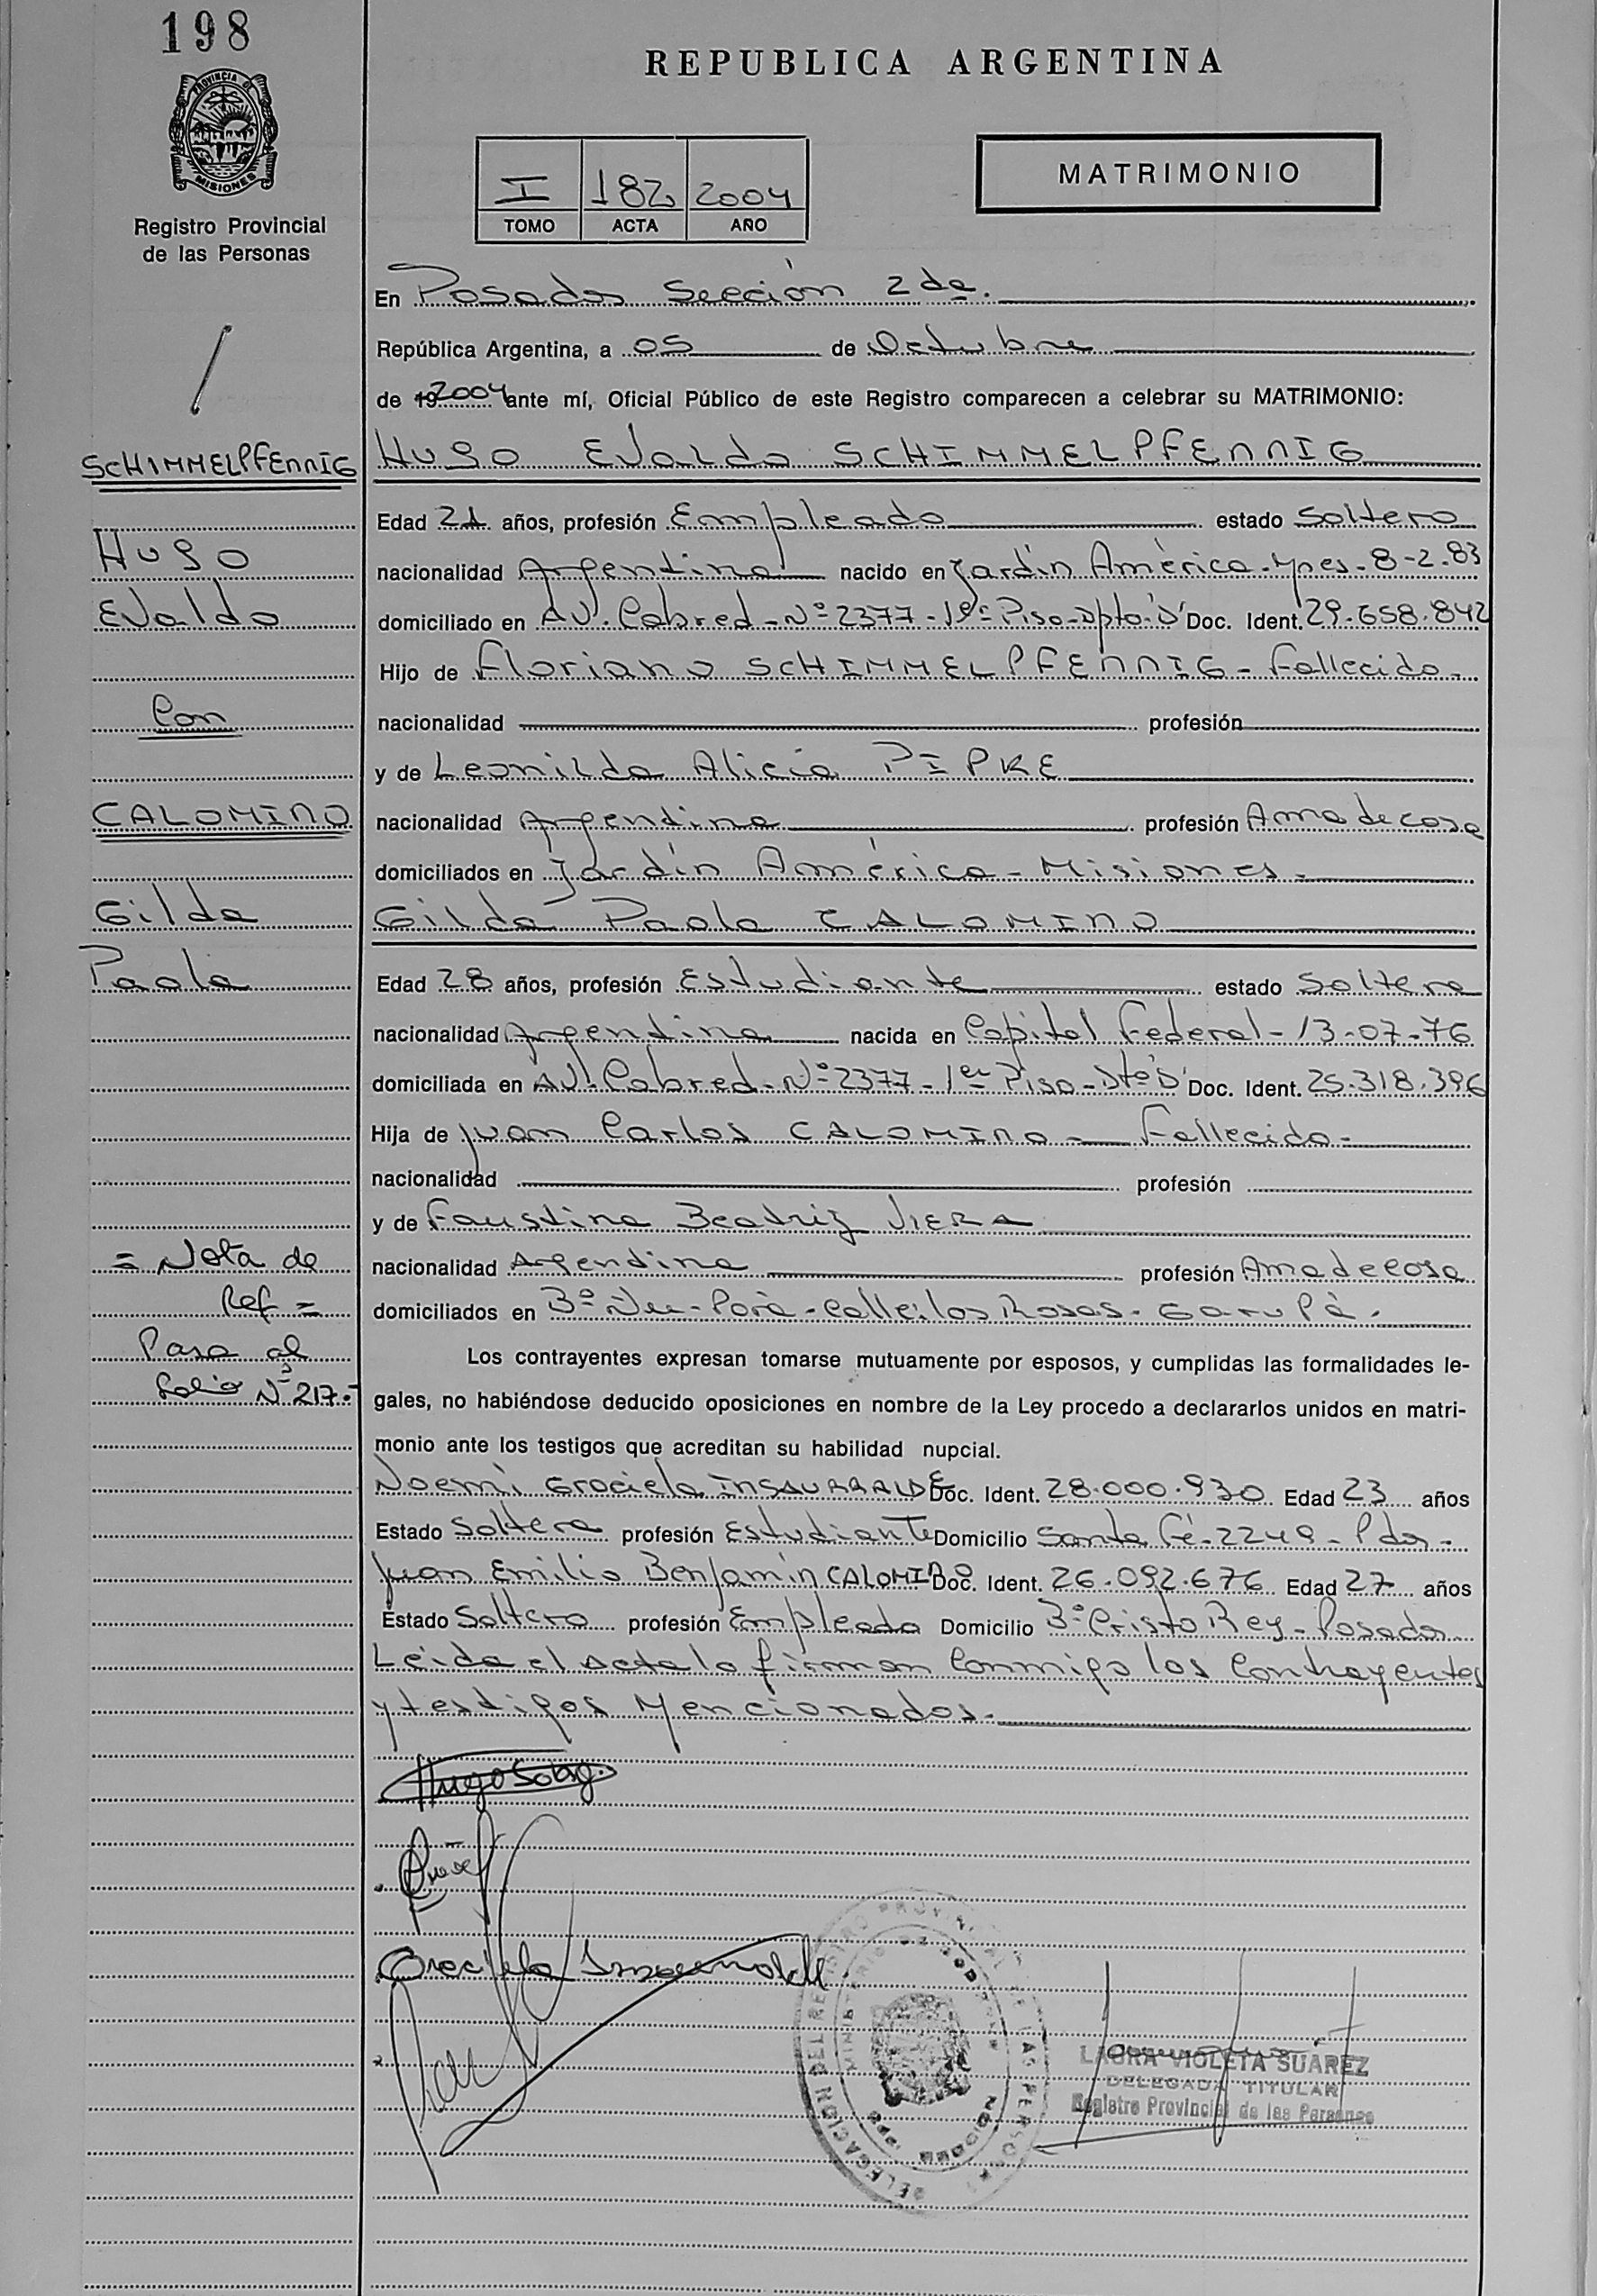 198
PROVINCIA DE
MISIONES
Registro Provincial
de las Personas
REPUBLICA ARGENTINA
I 182 2004
TOMO ACTA AÑO
MATRIMONIO
En Posadas Sección 2da.
República Argentina, a 05 de Octubre
de 19 2004 ante mí, Oficial Público de este Registro comparecen a celebrar su MATRIMONIO:
SCHIMMELPFENNIG
Hugo
Evaldo
Con
CALOMINO
Gilda
Paola
= Nota de
Ref =
Pasa al
folio Nº 217.-
Hugo Evaldo SCHIMMELPFENNIG
Edad 21 años, profesión Empleado estado Soltero
nacionalidad Argentina nacido en Jardín América - Mnes - 8-2-83
domiciliado en AV. Cabred - Nº 2377 - 1er Piso - Dpto "D" Doc. Ident. 29.658.842
Hijo de Floriano SCHIMMELPFENNIG - Fallecido -
nacionalidad profesión
y de Leonilda Alicia PIPKE
nacionalidad Argentina profesión Ama de casa
domiciliados en Jardín América - Misiones -
Gilda Paola CALOMINO
Edad 28 años, profesión Estudiante estado Soltera
nacionalidad Argentina nacida en Capital Federal - 13-07-76
domiciliada en AV. Cabred - Nº 2377 - 1er Piso - Dto "D" Doc. Ident. 25.318.396
Hija de Juan Carlos CALOMINO - Fallecido -
nacionalidad profesión
y de Faustina Beatriz VIERA
nacionalidad Argentina profesión Ama de Casa
domiciliados en Bº Ñu - Porá - Calle: Los Rosas - Garupá.
Los contrayentes expresan tomarse mutuamente por esposos, y cumplidas las formalidades le-
gales, no habiéndose deducido oposiciones en nombre de la Ley procedo a declararlos unidos en matri-
monio ante los testigos que acreditan su habilidad nupcial.
Noemí Graciela INSAURRALDE Doc. Ident. 28.000.930 Edad 23 años
Estado Soltera profesión Estudiante Domicilio Santa Fé - 2249 - Pdas -
Juan Emilio Benjamín CALOMINO Doc. Ident. 26.092.676 Edad 27 años
Estado Soltero profesión Empleado Domicilio Bº Cristo Rey - Posadas
Leída el acta la firman Conmigo los Contrayentes
y testigos Mencionados.
Graciela Insaurralde
LAURA VIOLETA SUAREZ
DELEGADA TITULAR
Registro Provincial de las Personas